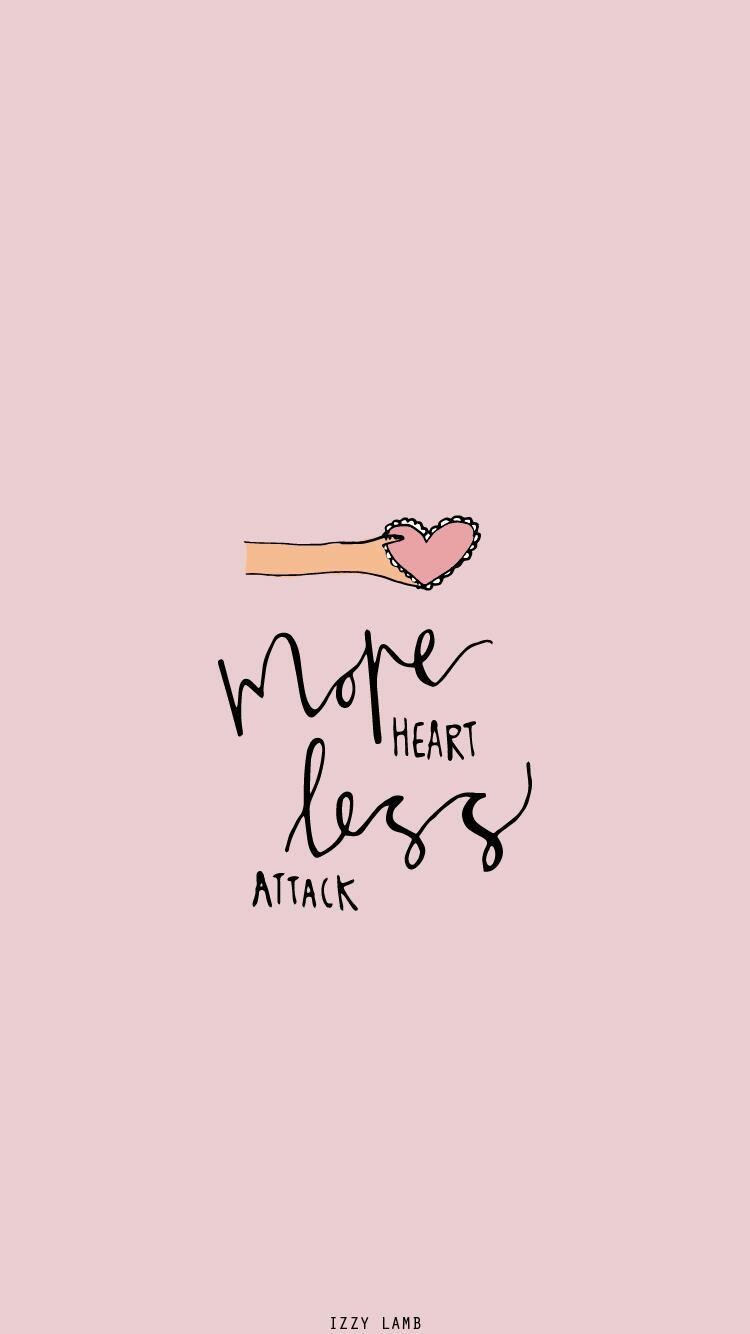 more
HEART
less
ATTACK
IZZY LAMB